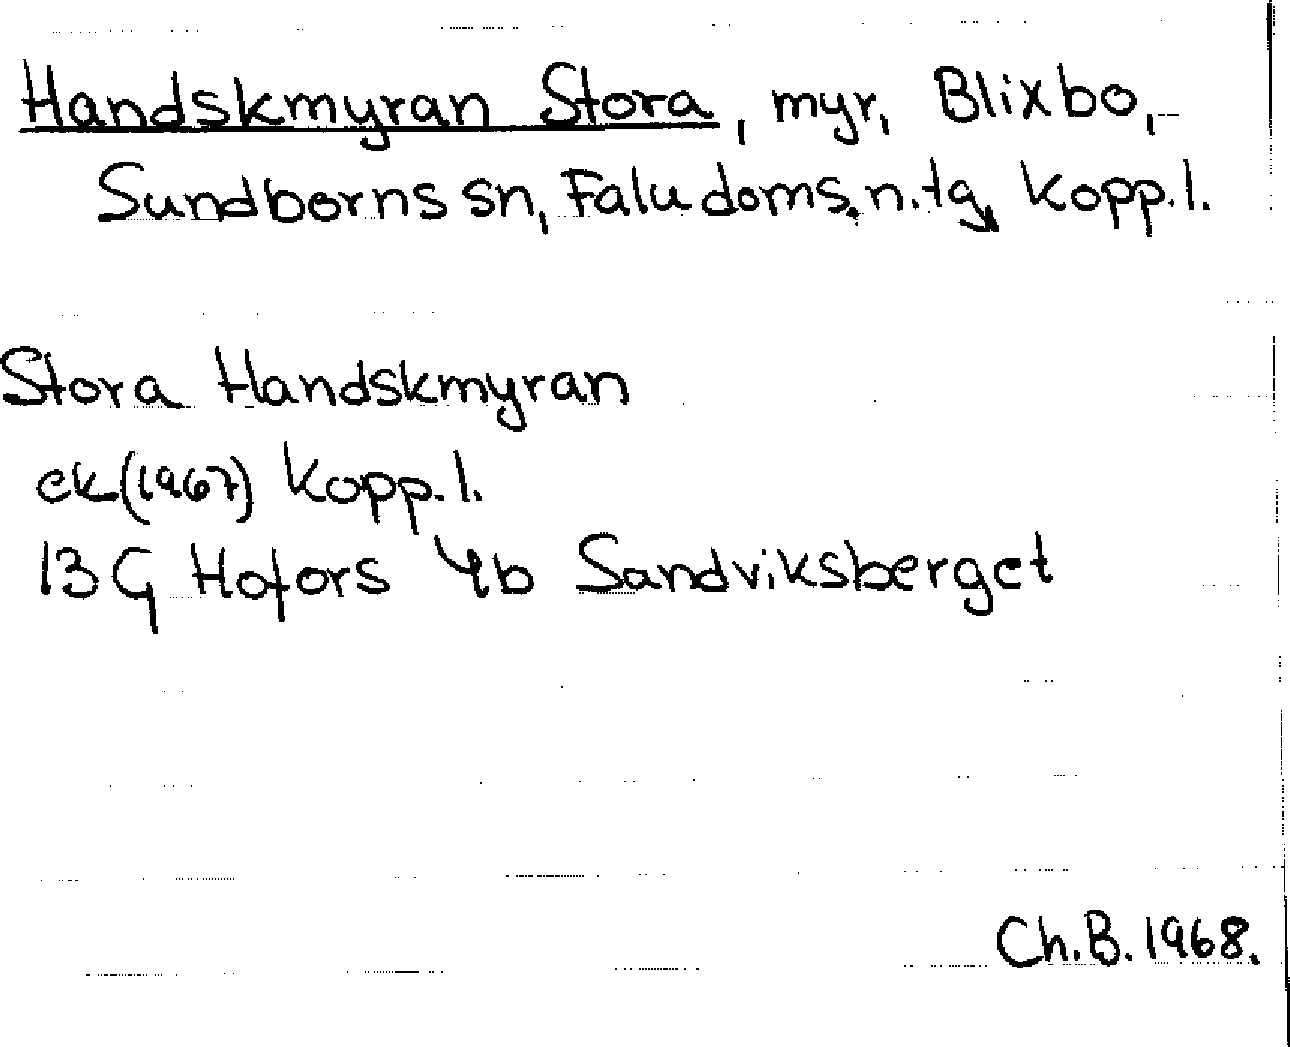 Handskmyran Stora, myr, Blixbo,
Sundborns sn, Falu doms.n.tg, Kopp.l.
Stora Handskmyran
ek(1967) Kopp.l.
13G Hofors 4b Sandviksberget
Ch.B. 1968.